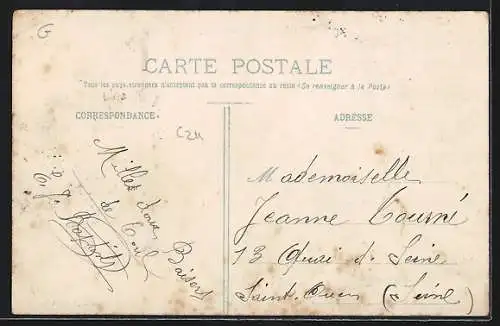 G
CARTE POSTALE
Tous les pays étrangers n'acceptent pas la correspondance au recto (Se renseigner à la Poste)
CORRESPONDANCE
C24
Milles doux
Baisers
de
ADRESSE
Mademoiselle
Jeanne Tourné
13 Quai de Seine
Saint-Ouen (Seine)